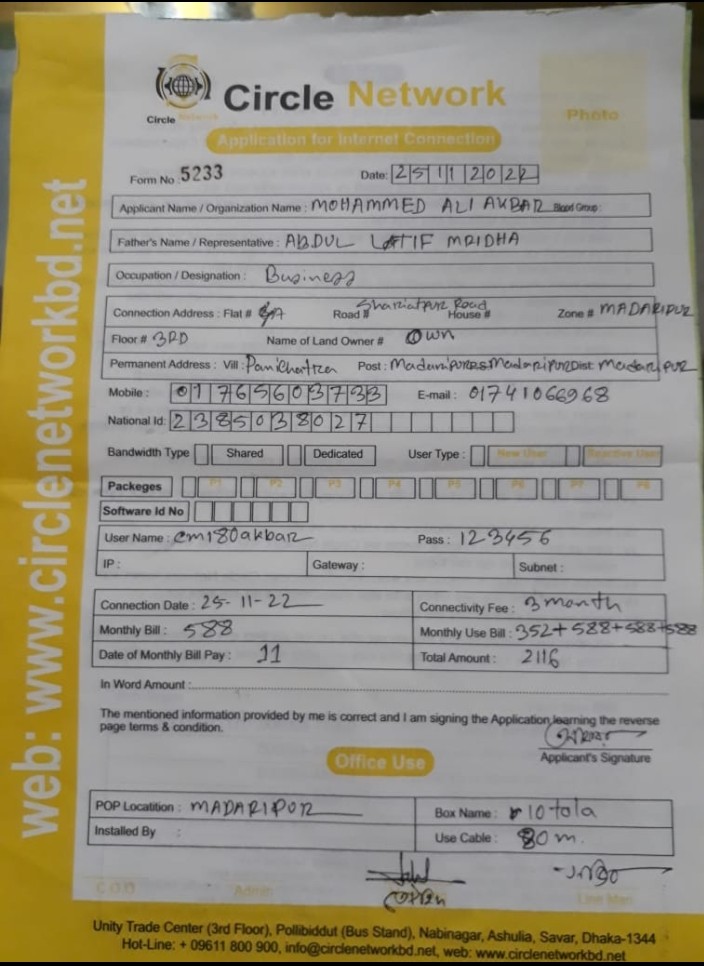 Circle Network
Circle Network
Photo
Application for Internet Connection
Form No 5233 Date: 25 11 2022
Applicant Name / Organization Name : MOHAMMED ALI AKBAR Blood Group :
Father's Name / Representative : ABDUL LATIF MRIDHA
Occupation / Designation : Business
Connection Address : Flat # Road # Shariatpur Road House # Zone # MADARIPUR
Floor # 3RD Name of Land Owner # Own
Permanent Address : Vill: Panichatra Post : Madaripur P.S Madaripur Dist: Madaripur
Mobile : 01765603733 E-mail : 01741066968
National Id: 2385038027
Bandwidth Type Shared Dedicated User Type : New User Reactive User
Packeges P1 P2 P3 P4 P5 P6 P7 P8
Software Id No
User Name : cm180akbar Pass : 123456
IP : Gateway : Subnet :
Connection Date : 25-11-22 Connectivity Fee : 3 month
Monthly Bill : 588 Monthly Use Bill : 352+588+588+588
Date of Monthly Bill Pay : 11 Total Amount : 2116
In Word Amount :
The mentioned information provided by me is correct and I am signing the Application,learning the reverse
page terms & condition.
Applicant's Signature
Office Use
POP Locatition : MADARIPUR Box Name : 10 tola
Installed By : Use Cable : 80 m.
C.O.O Admin Line Man
Unity Trade Center (3rd Floor), Pollibiddut (Bus Stand), Nabinagar, Ashulia, Savar, Dhaka-1344
Hot-Line: + 09611 800 900, info@circlenetworkbd.net, web: www.circlenetworkbd.net
web: www.circlenetworkbd.net